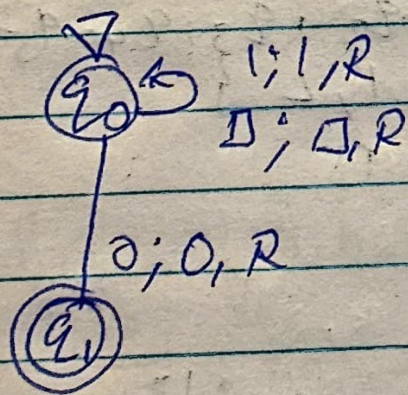 q₀
1;1,R
□;□,R
0;0,R
q₁